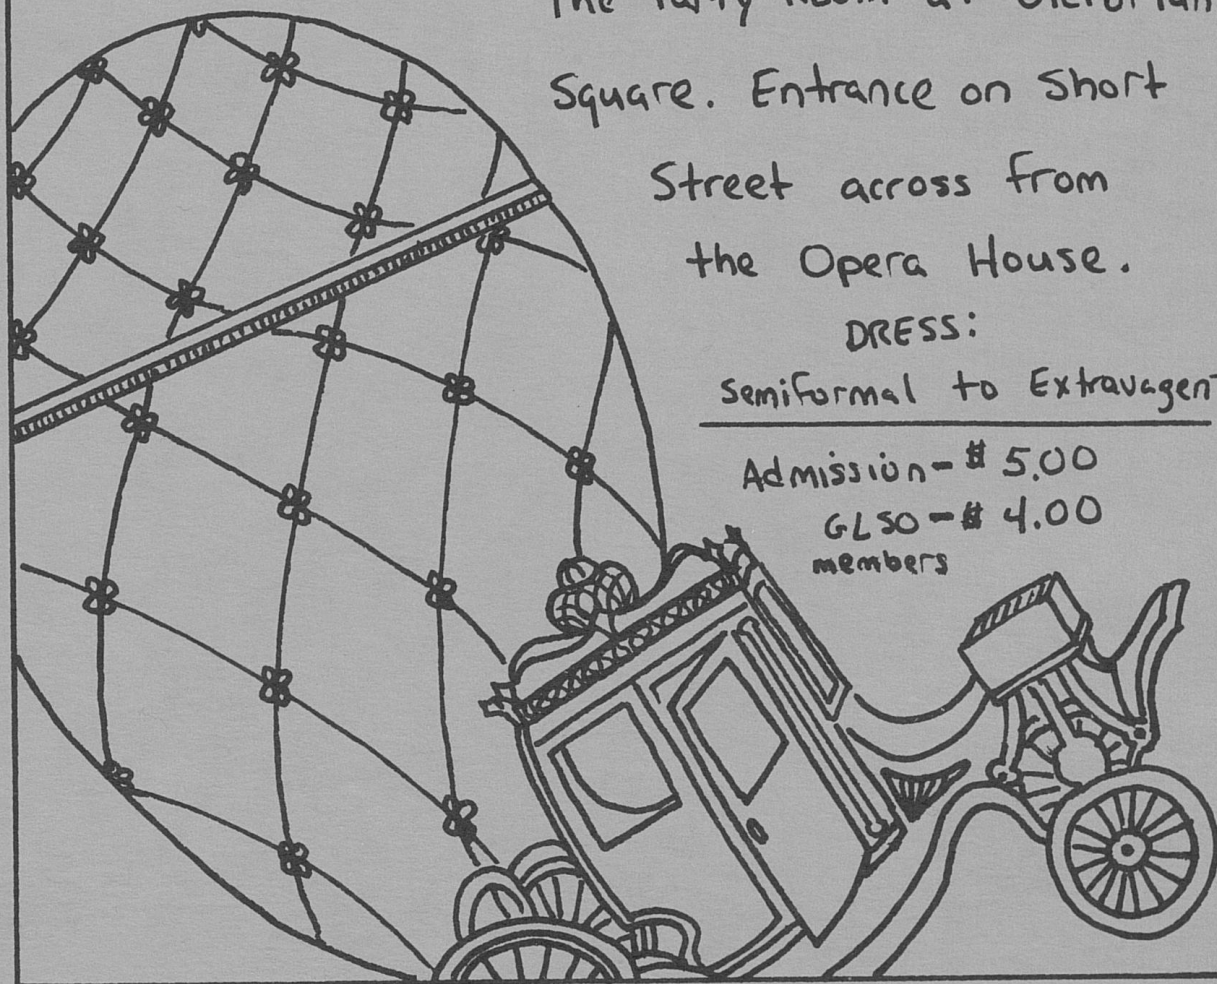 The Party Room at Victorian
Square. Entrance on Short
Street across from
the Opera House.
DRESS:
semiformal to Extravagent
Admission - $ 5.00
GLSO - $ 4.00
members